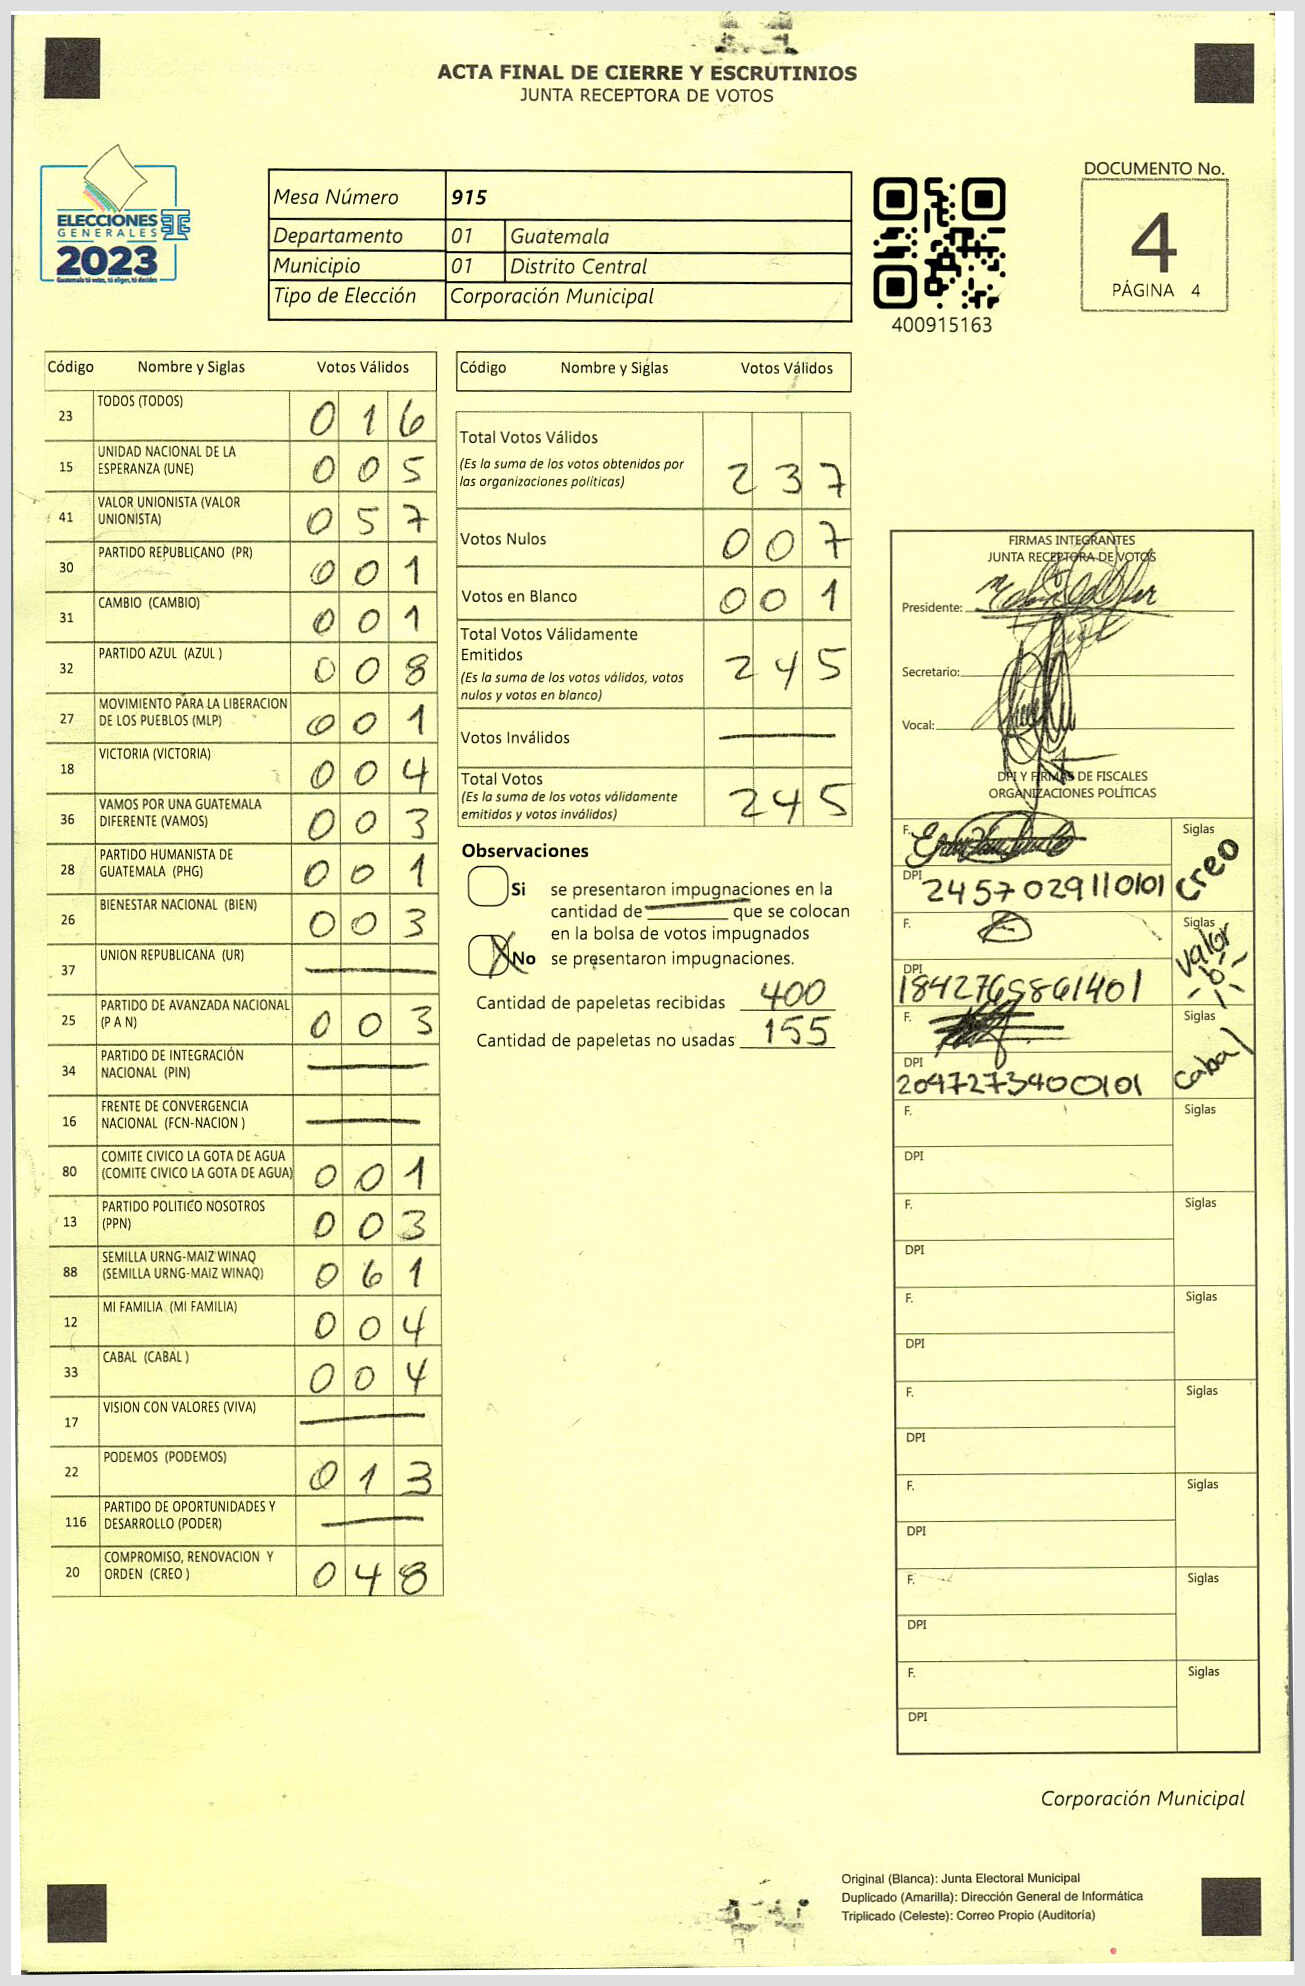 ACTA FINAL DE CIERRE Y ESCRUTINIOS
JUNTA RECEPTORA DE VOTOS
ELECCIONES
GENERALES
2023
Mesa Número 915
Departamento 01 Guatemala
Municipio 01 Distrito Central
Tipo de Elección Corporación Municipal
400915163
DOCUMENTO No.
4
PÁGINA 4
Código Nombre y Siglas Votos Válidos
23 TODOS (TODOS) 0 1 6
15 UNIDAD NACIONAL DE LA
ESPERANZA (UNE) 0 0 5
41 VALOR UNIONISTA (VALOR
UNIONISTA) 0 5 7
30 PARTIDO REPUBLICANO (PR) 0 0 1
31 CAMBIO (CAMBIO) 0 0 1
32 PARTIDO AZUL (AZUL ) 0 0 8
27 MOVIMIENTO PARA LA LIBERACION
DE LOS PUEBLOS (MLP) 0 0 1
18 VICTORIA (VICTORIA) 0 0 4
36 VAMOS POR UNA GUATEMALA
DIFERENTE (VAMOS) 0 0 3
28 PARTIDO HUMANISTA DE
GUATEMALA (PHG) 0 0 1
26 BIENESTAR NACIONAL (BIEN) 0 0 3
37 UNION REPUBLICANA (UR)
25 PARTIDO DE AVANZADA NACIONAL
(P A N) 0 0 3
34 PARTIDO DE INTEGRACIÓN
NACIONAL (PIN)
16 FRENTE DE CONVERGENCIA
NACIONAL (FCN-NACION )
80 COMITE CIVICO LA GOTA DE AGUA
(COMITE CIVICO LA GOTA DE AGUA) 0 0 1
13 PARTIDO POLITICO NOSOTROS
(PPN) 0 0 3
88 SEMILLA URNG-MAIZ WINAQ
(SEMILLA URNG-MAIZ WINAQ) 0 6 1
12 MI FAMILIA (MI FAMILIA) 0 0 4
33 CABAL (CABAL ) 0 0 4
17 VISION CON VALORES (VIVA)
22 PODEMOS (PODEMOS) 0 1 3
116 PARTIDO DE OPORTUNIDADES Y
DESARROLLO (PODER)
20 COMPROMISO, RENOVACION Y
ORDEN (CREO ) 0 4 8
Código Nombre y Siglas Votos Válidos
Total Votos Válidos
(Es la suma de los votos obtenidos por
las organizaciones políticas) 2 3 7
Votos Nulos 0 0 7
Votos en Blanco 0 0 1
Total Votos Válidamente
Emitidos 2 4 5
(Es la suma de los votos válidos, votos
nulos y votos en blanco)
Votos Inválidos
Total Votos
(Es la suma de los votos válidamente
emitidos y votos inválidos) 2 4 5
Observaciones
Si se presentaron impugnaciones en la
cantidad de que se colocan
en la bolsa de votos impugnados
No se presentaron impugnaciones.
Cantidad de papeletas recibidas 400
Cantidad de papeletas no usadas 155
FIRMAS INTEGRANTES
JUNTA RECEPTORA DE VOTOS
Presidente:
Secretario:
Vocal:
DPI Y FIRMAS DE FISCALES
ORGANIZACIONES POLÍTICAS
F. Siglas Creo
DPI 2457029110101
F. Siglas Valor
DPI
F. Siglas Cabal
DPI 2097273400101
F. Siglas
DPI
F. Siglas
DPI
F. Siglas
DPI
F. Siglas
DPI
F. Siglas
DPI
F. Siglas
DPI
F. Siglas
DPI
Corporación Municipal
Original (Blanca): Junta Electoral Municipal
Duplicado (Amarilla): Dirección General de Informática
Triplicado (Celeste): Correo Propio (Auditoría)